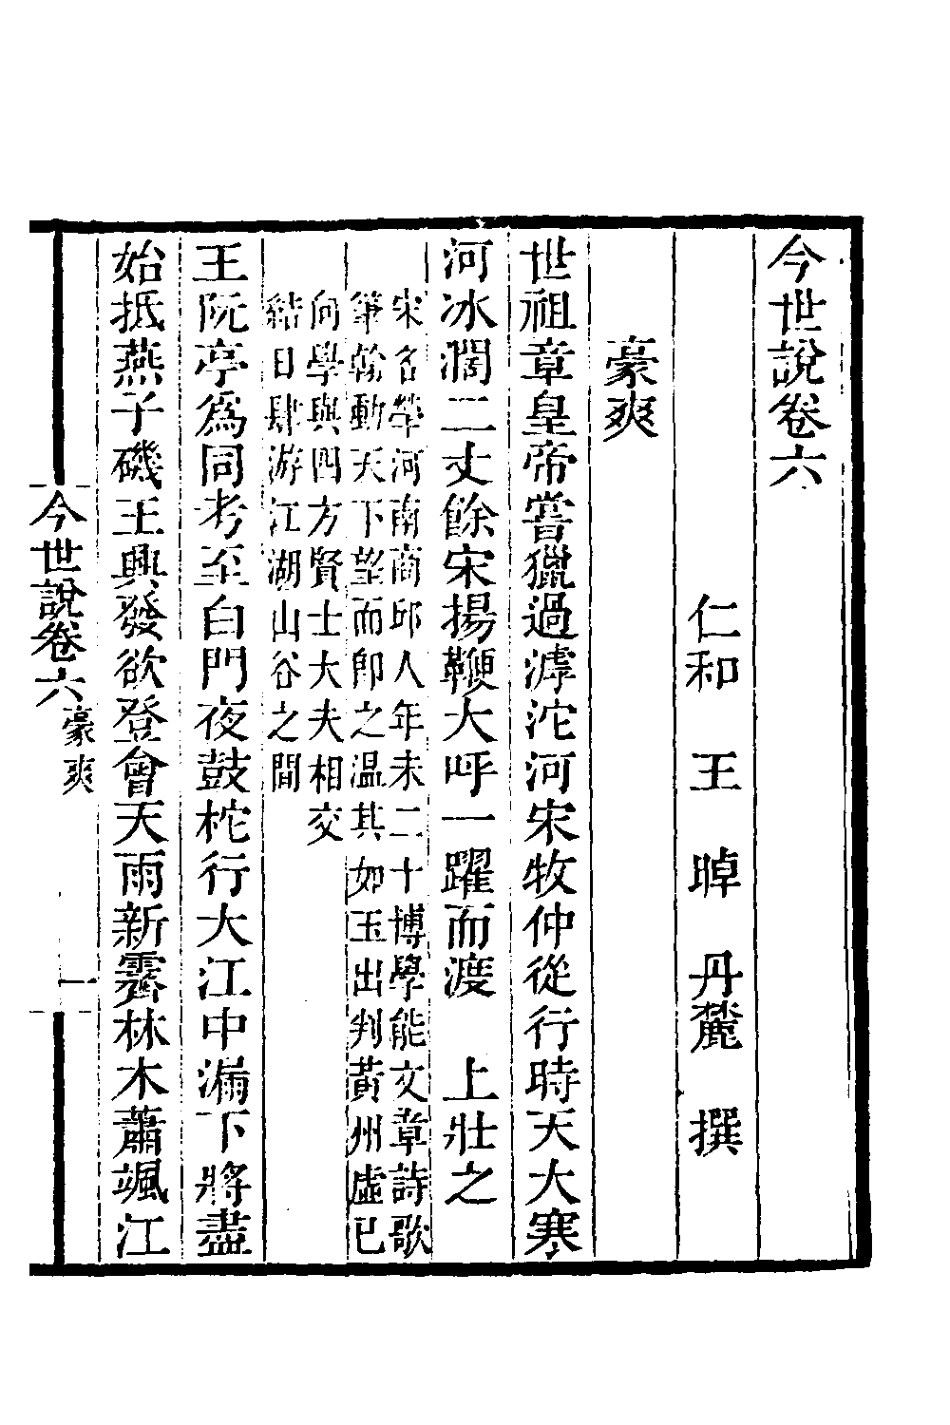 今世說卷六
仁和 王 晫 丹麓 撰
豪爽
世祖章皇帝嘗獵過滹沱河宋牧仲從行時天大寒
河冰濶二丈餘宋揚鞭大呼一躍而渡 上壯之
宋名犖河南商邱人年未二十博學能文章詩歌
筆翰動天下望而卽之温其如玉出判黃州虛已
向學與四方賢士大夫相交
結日肆游江湖山谷之間
王阮亭爲同考至白門夜鼓柁行大江中漏下將盡
始抵燕子磯王興發欲登會天雨新霽林木蕭颯江
今世說卷六 豪爽 一